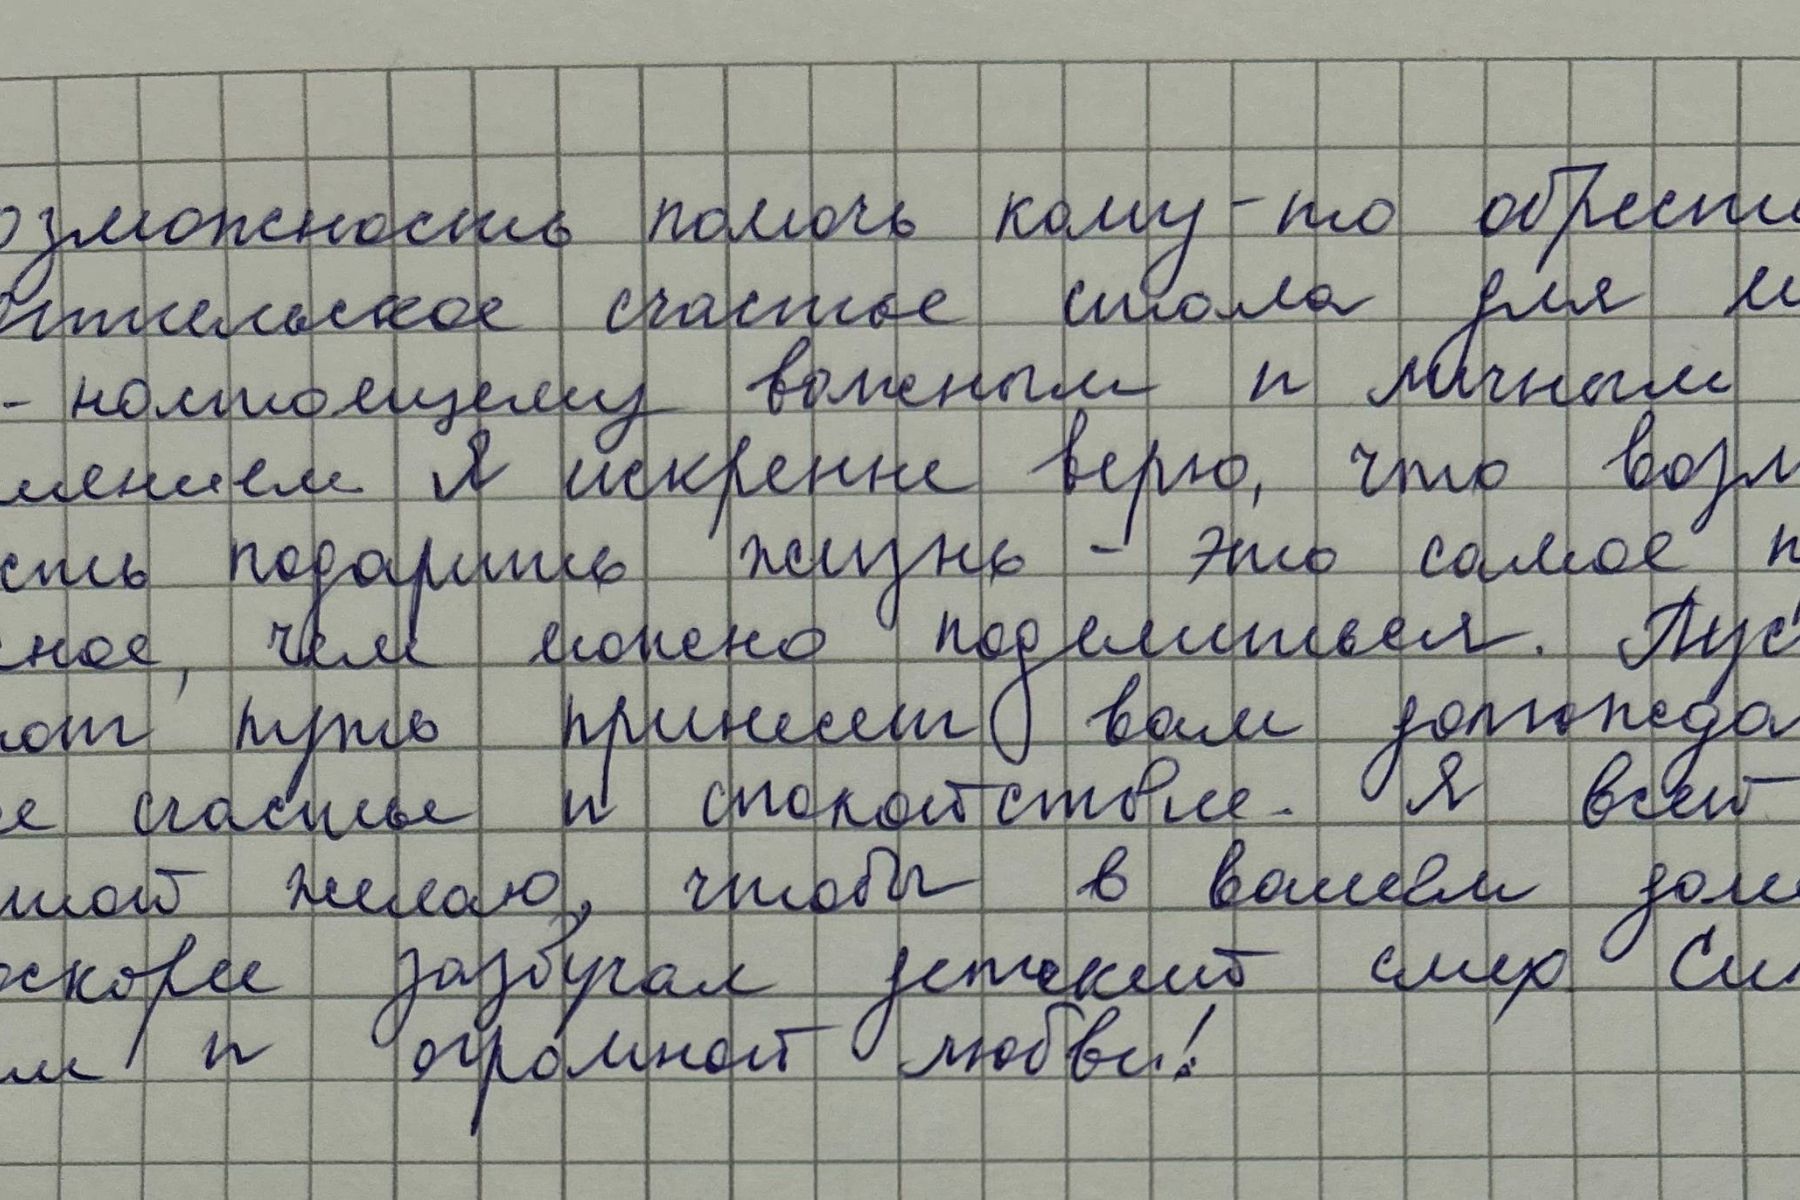 озможность помочь кому-то обрести
ительское счастье стала для м
- настоящему важным и личным
шением Я искренне верю, что возм
сть подарить жизнь - это самое п
сное, чем можно поделиться. Пуст
тот путь принесет вам долгожда
е счастье и спокойствие. Я всей
шой желаю, чтобы в вашем дом
оскорее зазвучал детский смех. Сил
ам и огромной любви!